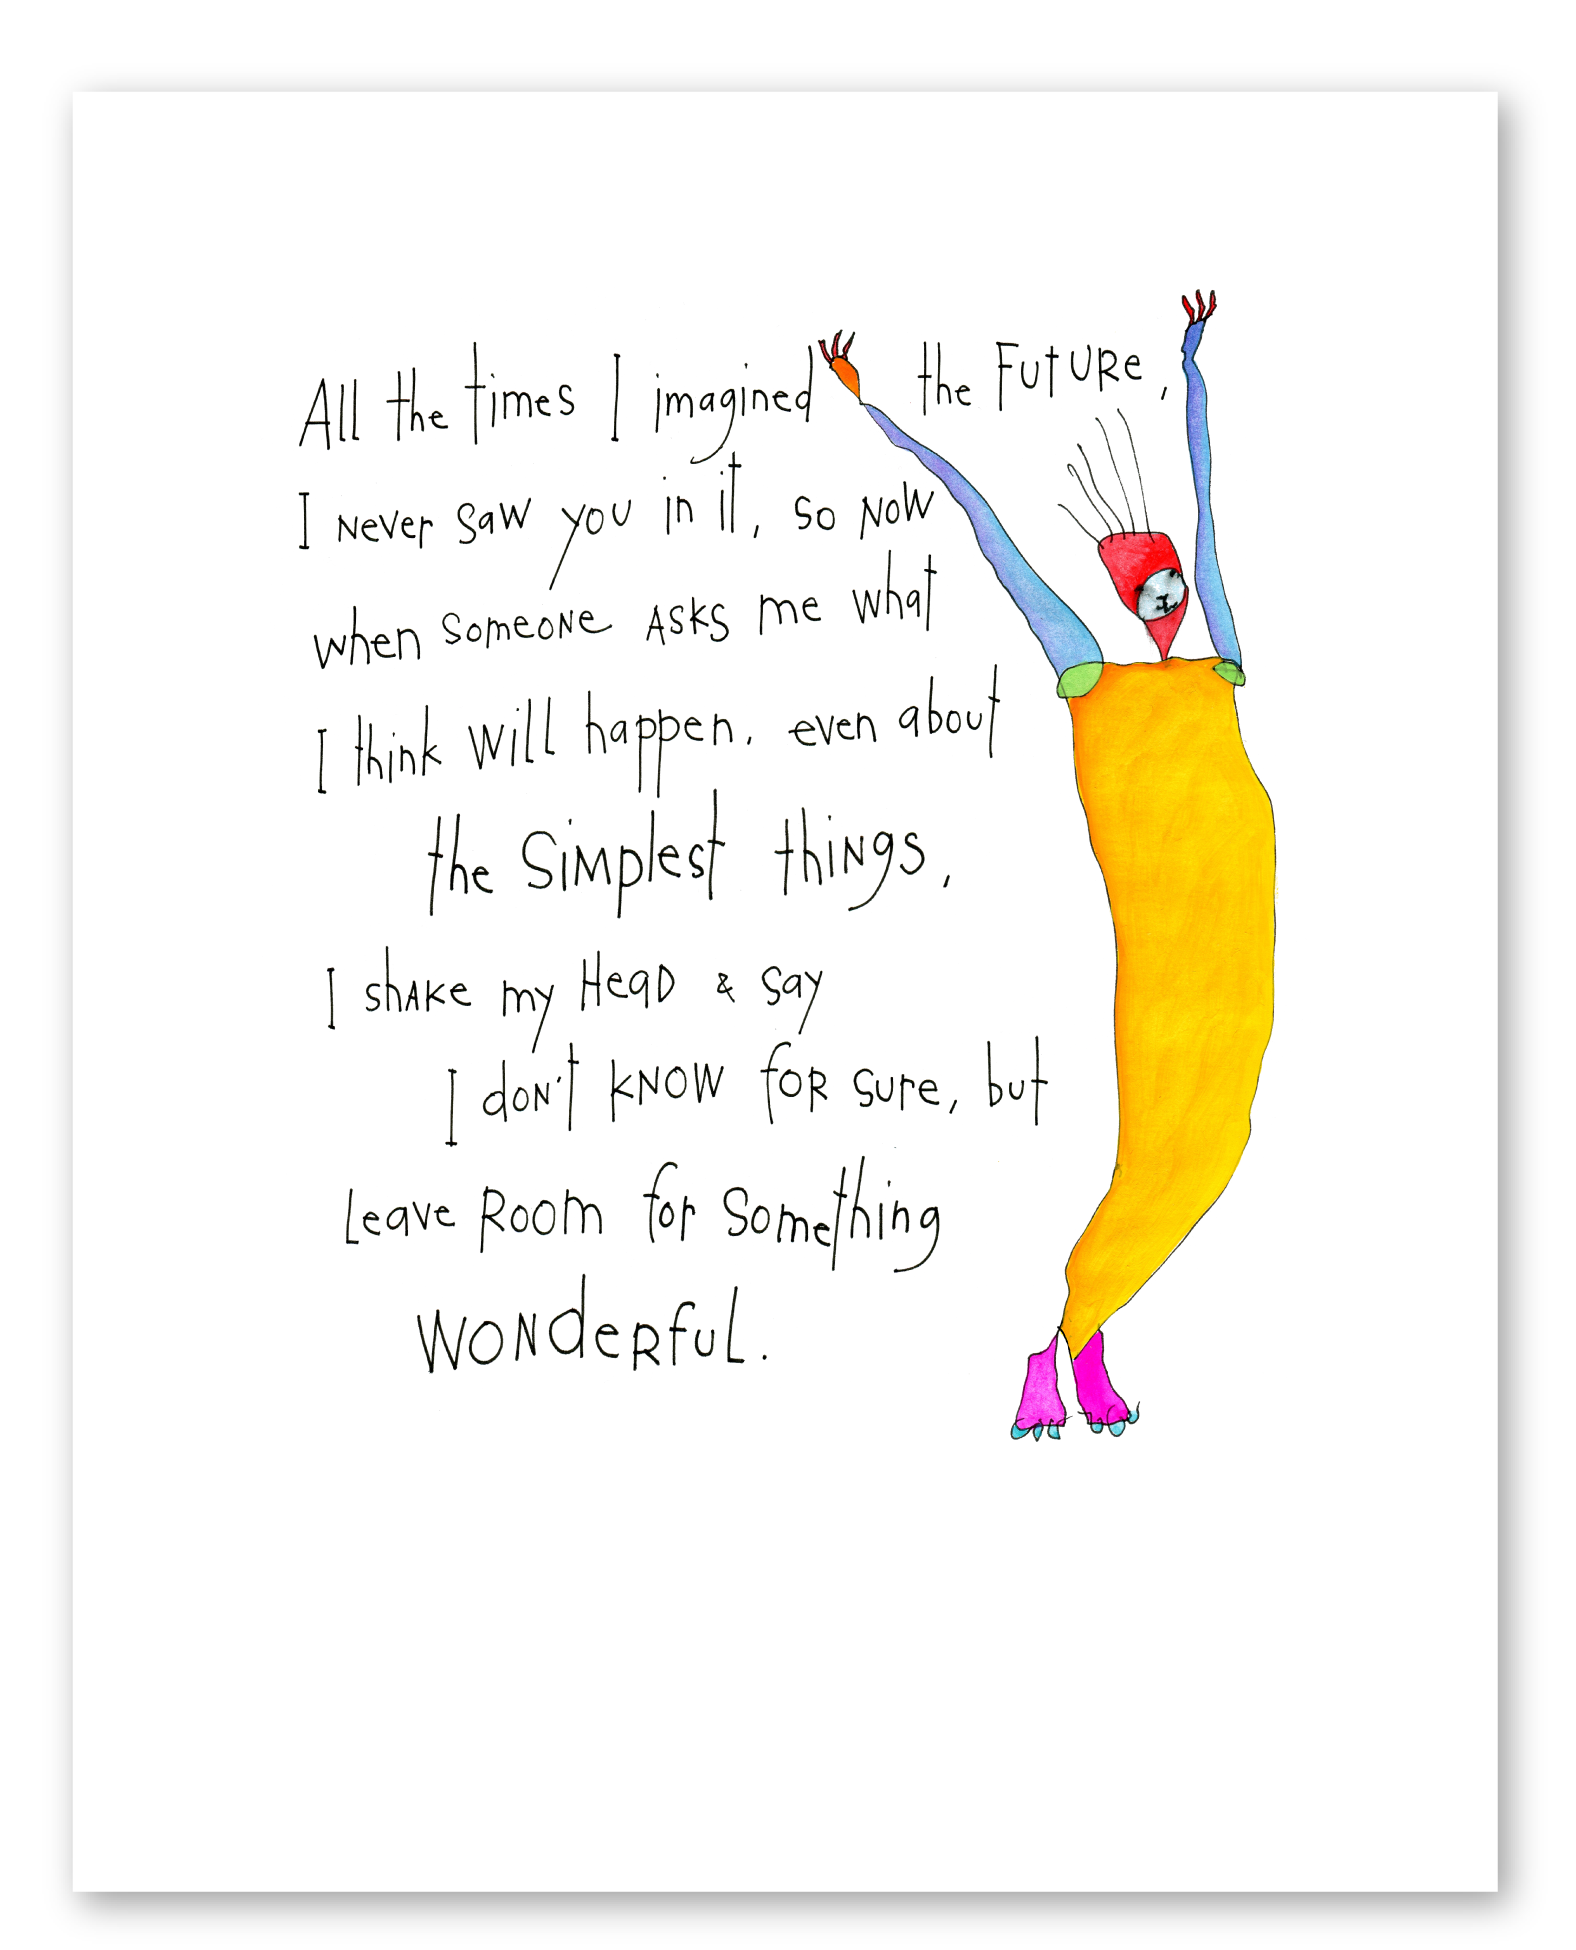 All the times I imagined the Future,
I never saw you in it, so now
when someone asks me what
I think will happen, even about
the Simplest things,
I shake my Head & say
I don't know for sure, but
Leave Room for Something
wonderful.